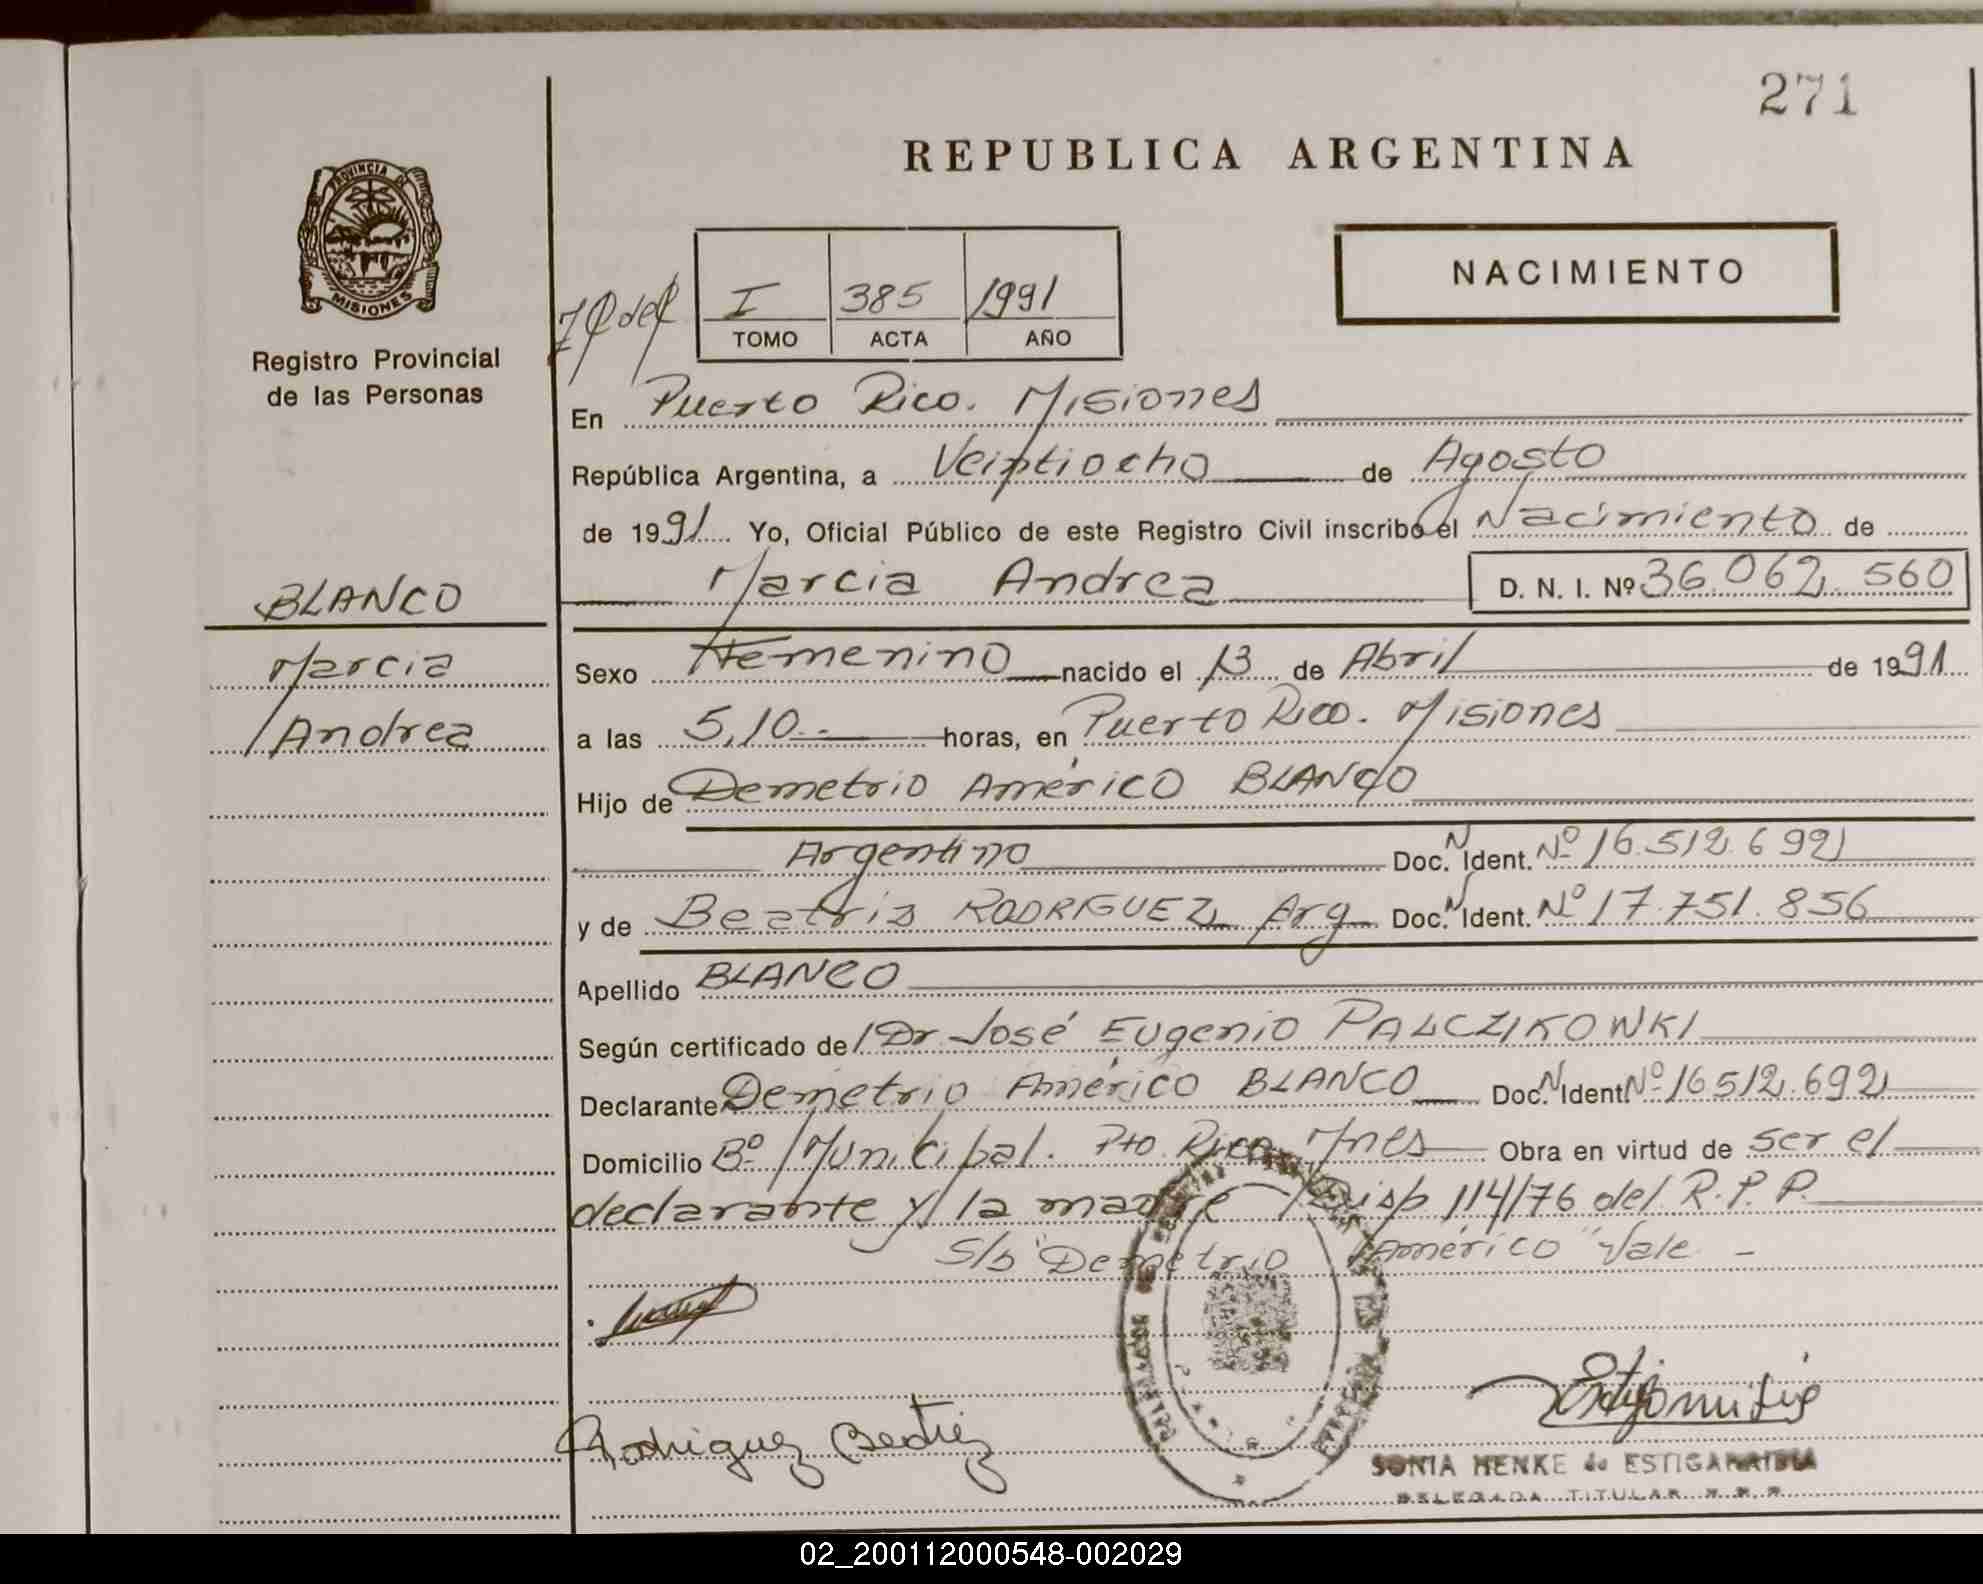 271
REPUBLICA ARGENTINA
PROVINCIA DE
MISIONES
Registro Provincial
de las Personas
NACIMIENTO
I 385 1991
TOMO ACTA AÑO
BLANCO
Marcia
Andrea
En Puerto Rico. Misiones
República Argentina, a Veintiocho de Agosto
de 1991 Yo, Oficial Público de este Registro Civil inscribo el Nacimiento de
Marcia Andrea D. N. I. Nº 36.062.560
Sexo Femenino nacido el 13 de Abril de 1991
a las 5,10.- horas, en Puerto Rico. Misiones
Hijo de Demetrio Américo BLANCO
Argentino Doc. N Ident. Nº 16.512.692
y de Beatriz RODRIGUEZ Arg Doc. N Ident. Nº 17.751.856
Apellido BLANCO
Según certificado de Dr José Eugenio PALCZIKOWKI
Declarante Demetrio Américo BLANCO Doc. N Ident Nº 16512.692
Domicilio Bº Municipal. Pto Rico Mnes Obra en virtud de ser el
declarante y la madre Disp 114/76 del R.P.P.
S/b "Demetrio Américo" Vale -
Rodriguez Beatriz
SONIA HENKE de ESTIGARRIBIA
DELEGADA TITULAR R.P.P.
02_200112000548-002029